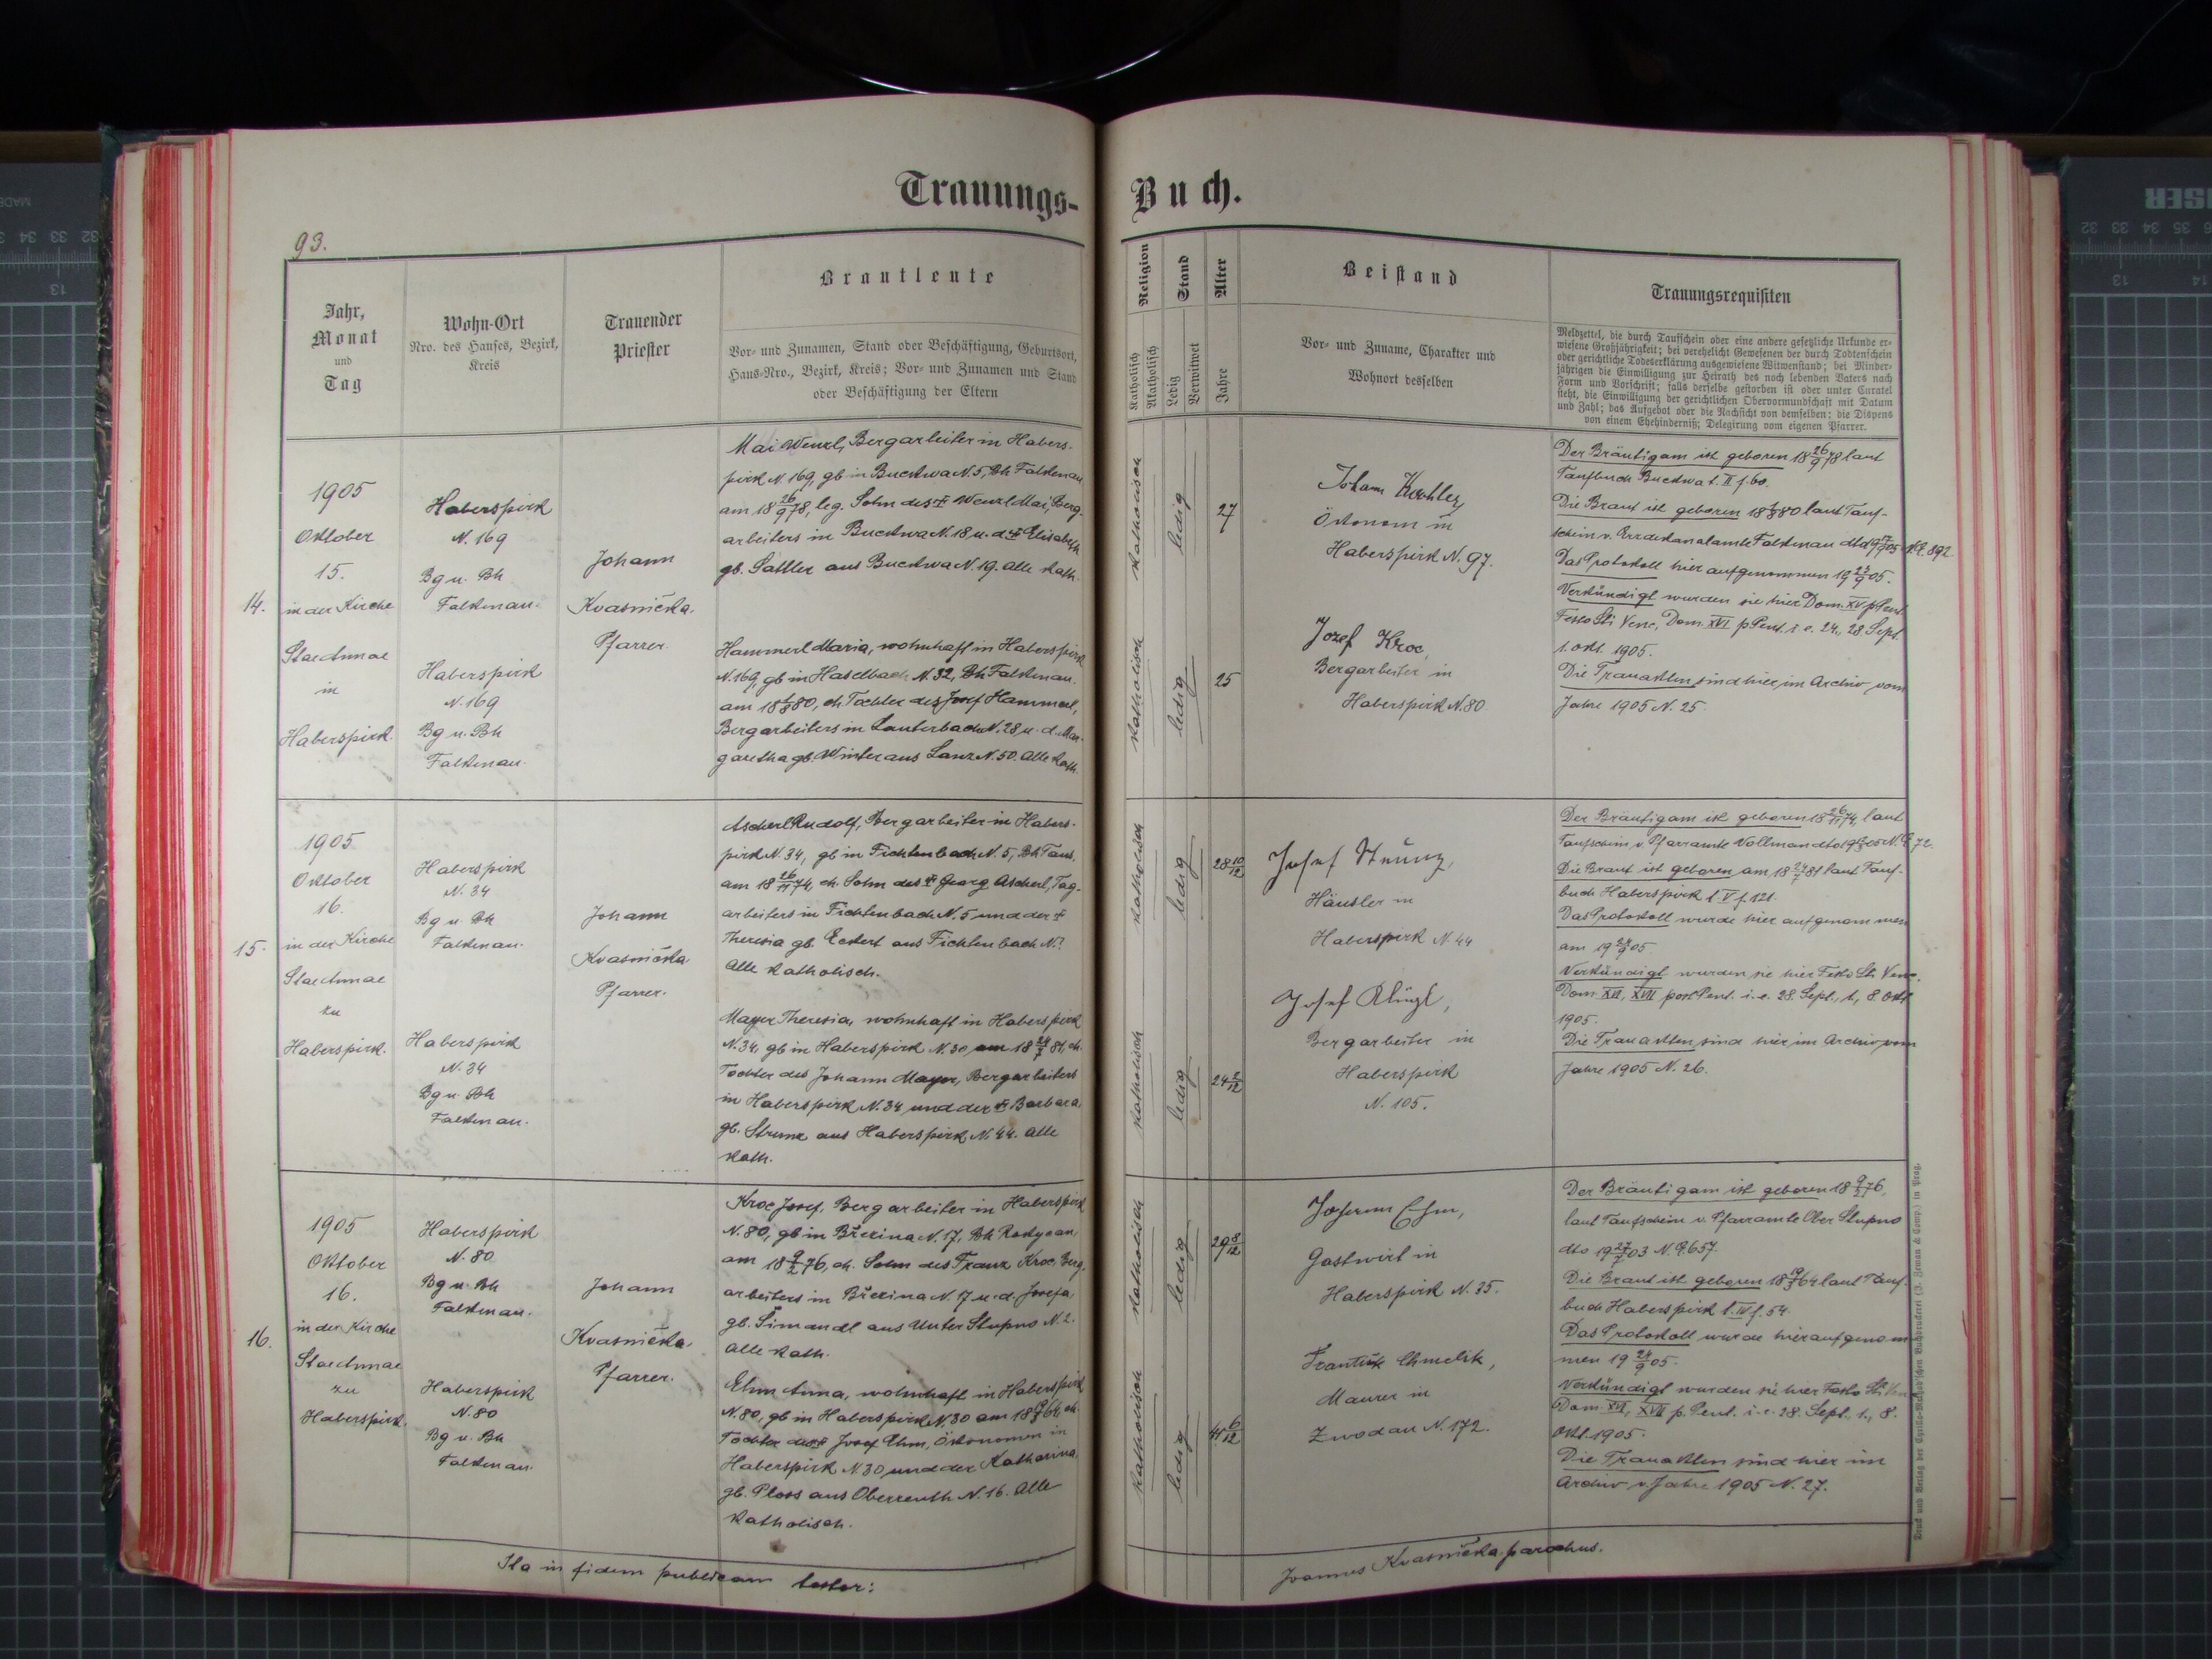 Trauungs-Buch.
93.
Jahr,
Monat
und
Tag
Wohn-Ort
Nro. des Hauses, Bezirk,
Kreis
Trauender
Priester
Brautleute
Vor- und Zunamen, Stand oder Beschäftigung, Geburtsort,
Haus-Nro., Bezirk, Kreis; Vor- und Zunamen und Stand
oder Beschäftigung der Eltern
Religion
Katholisch
Akatholisch
Stand
Ledig
Verwitwet
Alter
Jahre
Beistand
Vor- und Zuname, Charakter und
Wohnort desselben
Trauungsrequisiten
Meldzettel, die durch Taufschein oder eine andere gesetzliche Urkunde er-
wiesene Großjährigkeit; bei verehelicht Gewesenen der durch Todtenschein
oder gerichtliche Todeserklärung ausgewiesene Witwenstand; bei Minder-
jährigen die Einwilligung zur Heirath des noch lebenden Vaters nach
Form und Vorschrift; falls derselbe gestorben ist oder unter Curatel
steht, die Einwilligung der gerichtlichen Obervormundschaft mit Datum
und Zahl; das Aufgebot oder die Nachsicht von demselben; die Dispens
von einem Ehehinderniß; Delegirung vom eigenen Pfarrer.
14.
1905
Oktober
15.
in der Kirche
Stae Annae
in
Haberspirk.
Haberspirk
N. 169
Bg u. Bh
Falkenau.
Haberspirk
N. 169
Bg u. Bh
Falkenau.
Johann
Kvasnička.
Pfarrer.
Mai Wenzl, Bergarbeiter in Habers-
pirk N. 169, gb in Buckwa N. 5, Bh Falkenau
am 18 26/9 78, leg. Sohn des † Wenzl Mai, Berg-
arbeiters in Buckwa N. 18 u. d. † Elisabeth
gb. Sattler aus Buckwa N. 19. Alle kath.
Hammerl Maria, wohnhaft in Haberspirk
N. 169, gb in Haselbach N. 32, Bh Falkenau.
am 18 /8 80, eh. Tochter des Josef Hammerl,
Bergarbeiters in Lauterbach N. 28 u. d. Mar-
garetha gb. Winter aus Lanz N. 50. Alle kath.
katholisch
ledig
27
katholisch
ledig
25
Johann Kochler
Ökonom in
Haberspirk N. 97.
Jozef Kroc,
Bergarbeiter in
Haberspirk N. 80.
Der Bräutigam ist geboren 18 26/9 78 laut
Taufbuch Buckwa t. II f. 60.
Die Braut ist geboren 18 /8 80 laut Tauf-
schein v. Erzdekanalamte Falkenau dto 19 /9 05 N. E. 892
Das Protokoll hier aufgenommen 19 /9 05.
Verkündigt wurden sie hier Dom. XV p. Pent.
Festo Sti Venc., Dom. XVI p. Pent. i. e. 24., 28. Sept.
1. Okt. 1905.
Die Trauakten sind hier im Archiv vom
Jahre 1905 N. 25.
15.
1905
Oktober
16.
in der Kirche
Stae Annae
zu
Haberspirk.
Haberspirk
N. 34
Bg u. Bh
Falkenau.
Haberspirk
N. 34
Bg u. Bh
Falkenau.
Johann
Kvasnička
Pfarrer.
Ascherl Rudolf, Bergarbeiter in Habers-
pirk N. 34, gb in Fichtenbach N. 5, Bh Taus.
am 18 26/11 74, eh. Sohn des † Georg Ascherl, Tag-
arbeiters in Fichtenbach N. 5 und der †
Theresia gb. Eckert aus Fichtenbach N.?
Alle katholisch.
Mayer Theresia, wohnhaft in Haberspirk
N. 34, gb in Haberspirk N. 30 am 18 24/7 81, eh.
Tochter des Johann Mayer, Bergarbeiters
in Haberspirk N. 34 und der † Barbara,
gb. Strunz aus Haberspirk N. 44. Alle
kath.
katholisch
ledig
28 10/12
katholisch
ledig
24 2/12
Josef Strunz,
Häusler in
Haberspirk N. 44
Josef Klügl,
Bergarbeiter in
Haberspirk
N. 105.
Der Bräutigam ist geboren 18 26/11 74, laut
Taufschein v. Pfarramte Vollmau dto 19 05 N. E. 72.
Die Braut ist geboren am 18 24/7 81 laut Tauf-
buch Haberspirk t. V f. 121.
Das Protokoll wurde hier aufgenommen
am 19 /9 05.
Verkündigt wurden sie hier Festo Sti Venc.
Dom. XVI, XVII post Pent. i. e. 28. Sept., 1., 8. Okt.
1905.
Die Trauakten sind hier im Archiv vom
Jahre 1905 N. 26.
16.
1905
Oktober
16.
in der Kirche
Stae Annae
zu
Haberspirk.
Haberspirk
N. 80
Bg u. Bh
Falkenau.
Haberspirk
N. 80
Bg u. Bh
Falkenau.
Johann
Kvasnička.
Pfarrer.
Kroc Josef, Bergarbeiter in Haberspirk
N. 80, gb in Březina N. 17, Bh Rokycan,
am 18 9/2 76, eh. Sohn des Franz Kroc, Berg-
arbeiters in Březina N. 17 u. d. Josefa,
gb. Šimandl aus Unter Stupno N. 2.
Alle kath.
Ehm Anna, wohnhaft in Haberspirk
N. 80, gb in Haberspirk N. 30 am 18 64, eh.
Tochter des † Josef Ehm, Ökonomen in
Haberspirk N. 30 und der Katharina,
gb. Ploss aus Oberreuth N. 16. Alle
katholisch.
katholisch
ledig
29 8/12
katholisch
ledig
41 6/12
Johann Ehm,
Gastwirt in
Haberspirk N. 35.
František Chmelík,
Maurer in
Zwodau N. 172.
Der Bräutigam ist geboren 18 9/2 76,
laut Taufschein v. Pfarramte Ober Stupno
dto 19 27/7 03 N. E. 657.
Die Braut ist geboren 18 64 laut Tauf-
buch Haberspirk t. IV f. 54.
Das Protokoll wurde hier aufgenom
men 19 24/9 05.
Verkündigt wurden sie hier Festo Sti Ven.
Dom. XVI, XVII p. Pent. i. e. 28. Sept., 1., 8.
Okt. 1905.
Die Trauakten sind hier im
Archiv v. Jahre 1905 N. 27.
Ita in fidem publicam testor:
Joannes Kvasnička parochus.
Druck und Verlag der Cyrillo-Method'schen Buchdruckerei (J. Zeman & Comp.) in Prag.